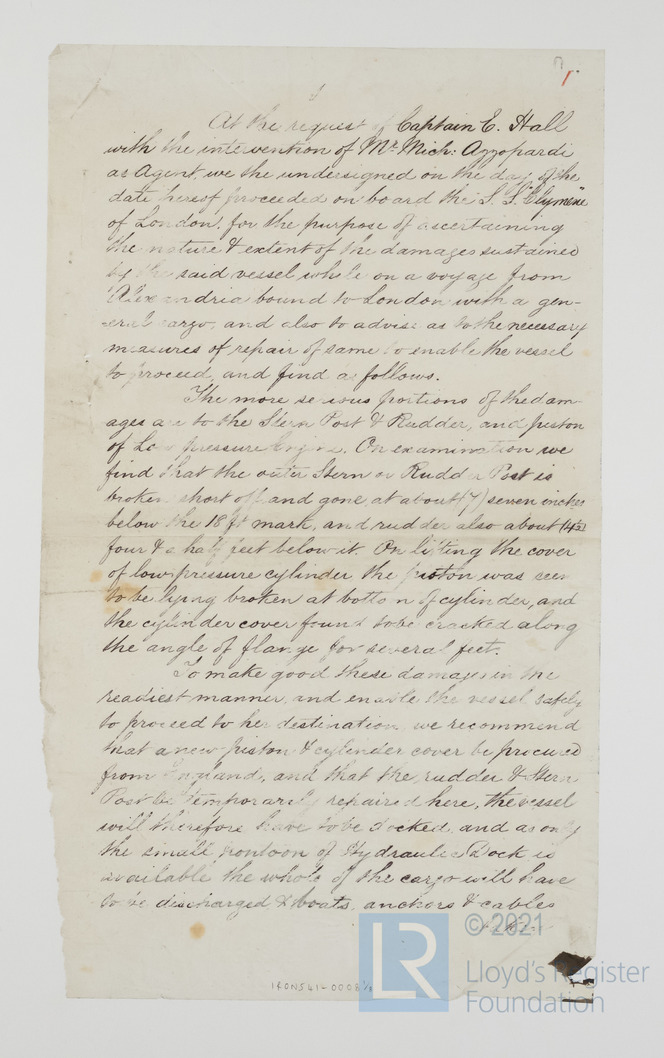 7
At the request of Captain E. Hall
with the intervention of Mr. Mich: Azzopardi
as Agent, we the undersigned on the day of the
date hereof proceeded on board the S. S. "Clymene"
of London, for the purpose of ascertaining
the nature & extent of the damages sustained
by the said vessel while on a voyage from
Alexandria bound to London with a gen-
eral cargo, and also to advise as to the necessary
measures of repair of same to enable the vessel
to proceed, and find as follows.
The more serious portions of the dam-
ages are to the Stern Post & Rudder, and piston
of Low pressure Engine. On examination we
find that the outer Stern or Rudder Post is
broken short off and gone, at about (7) seven inches
below the 18 ft mark, and rudder also about (4½)
four & a half feet below it. On lifting the cover
of low pressure cylinder the piston was seen
to be lying broken at bottom of cylinder, and
the cylinder cover found to be cracked along
the angle of flange for several feet.
To make good these damages in the
readiest manner, and enable the vessel safely
to proceed to her destination, we recommend
that a new piston & cylinder cover be procured
from England, and that the rudder & Stern
Post be temporarily repaired here, the vessel
will therefore have to be docked, and as only
the small pontoon of Hydraulic Dock is
available the whole of the cargo will have
to be discharged & boats, anchors & cables
IRON541-0008 1/3
LR
© 2021
Lloyd's Register
Foundation